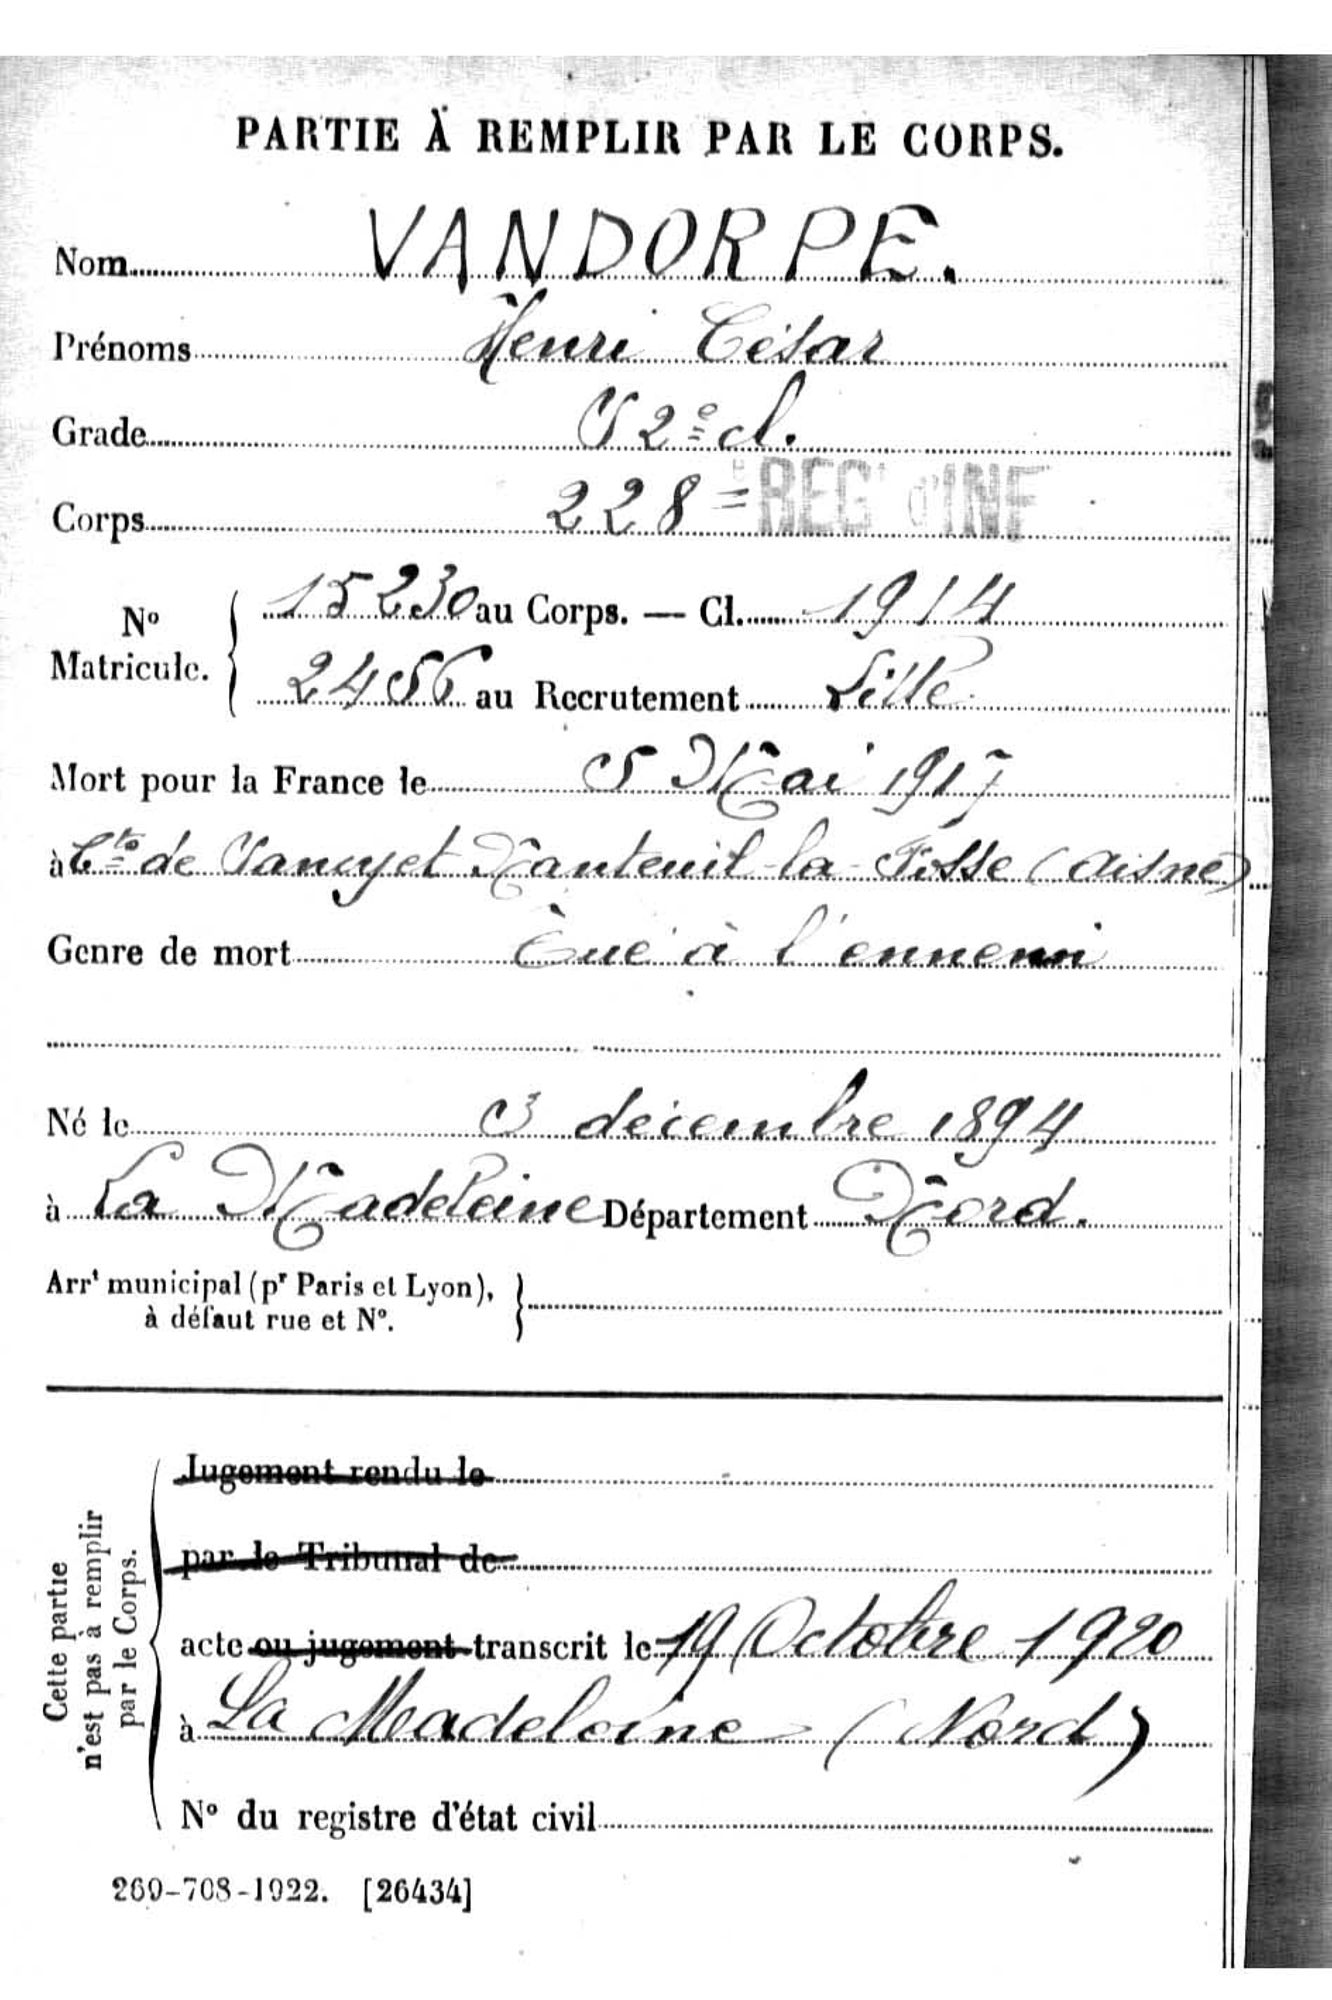 PARTIE À REMPLIR PAR LE CORPS.
Nom VANDORPE.
Prénoms Henri César
Grade S 2e cl.
Corps 228e REGt d'INF
No Matricule. { 15230 au Corps. — Cl. 1914
2456 au Recrutement Lille
Mort pour la France le 5 Mai 1917
à Cton de Vancyet Nanteuil-la-Fosse (Aisne)
Genre de mort Tué à l'ennemi
Né le 3 décembre 1894
à La Madeleine Département Nord.
Arrt municipal (pr Paris et Lyon),
à défaut rue et No.
Cette partie
n'est pas à remplir
par le Corps.
Jugement rendu le
par le Tribunal de
acte ou jugement transcrit le 19 Octobre 1920
à La Madeleine (Nord)
No du registre d'état civil
269-708-1922. [26434]